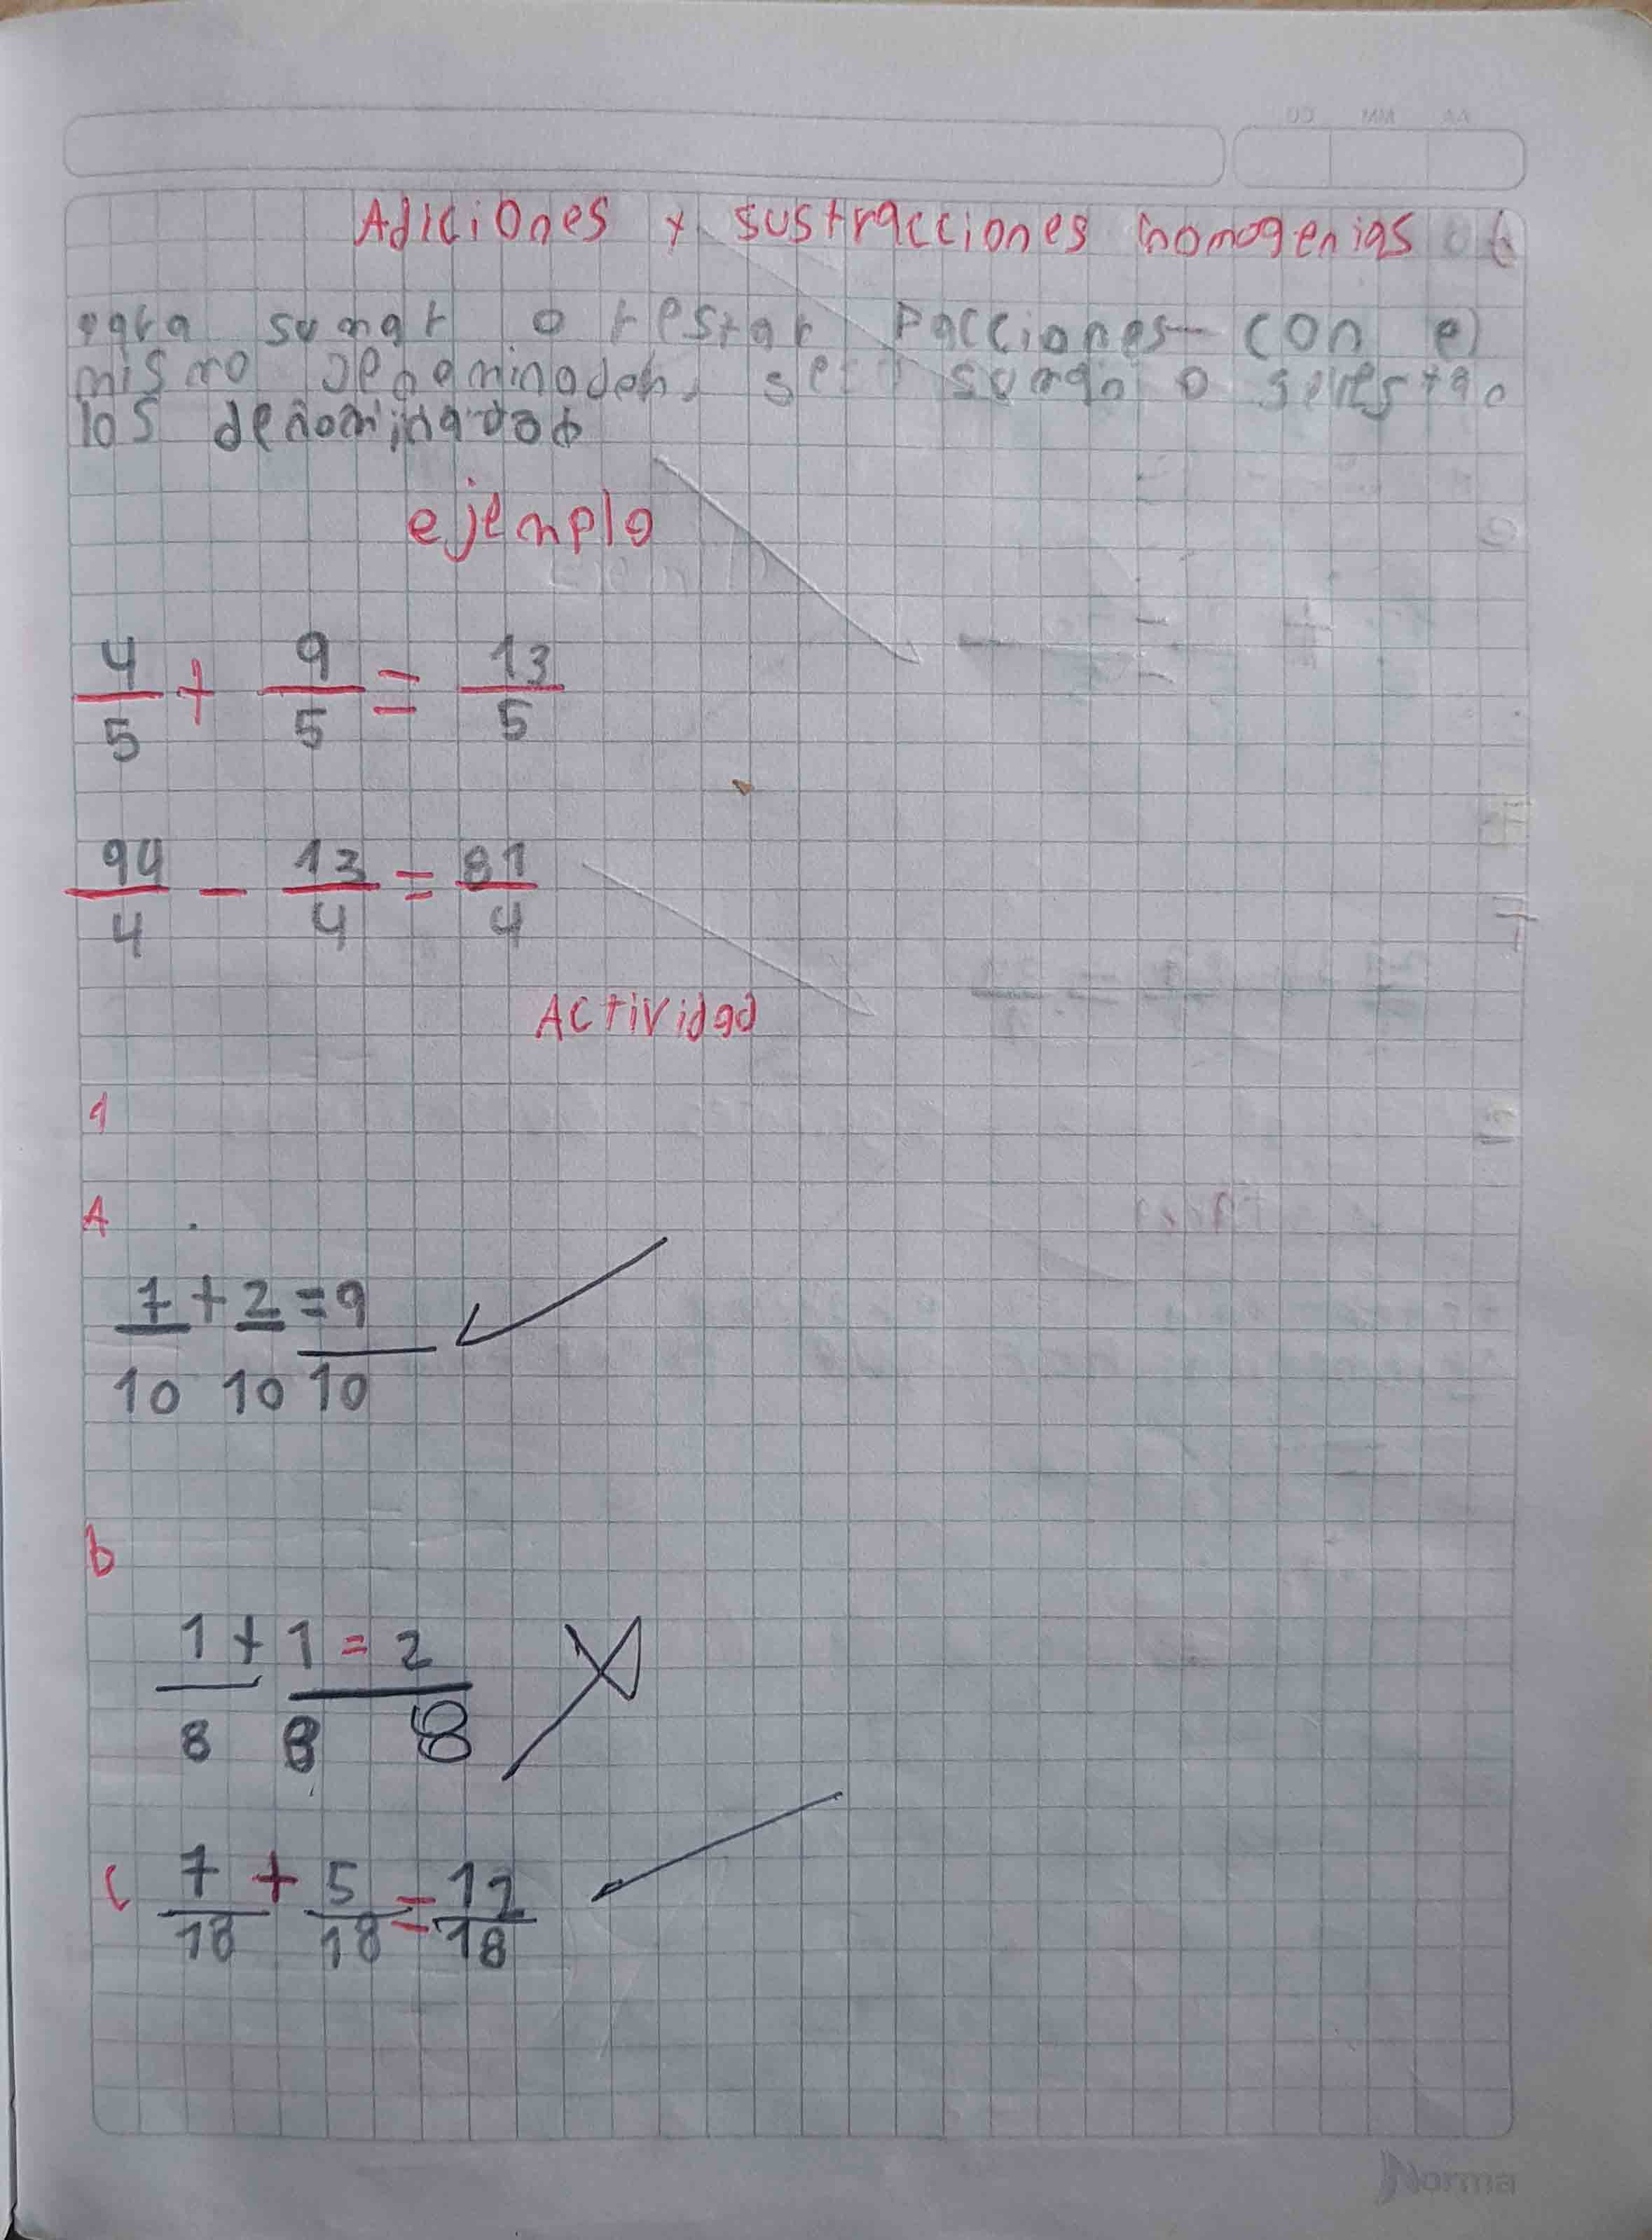 Adiciones y sustracciones homogenias
para sumar o restar Facciones con el
mismo denominador, se suman o se restan
los denominador
ejemplo
4/5 + 9/5 = 13/5
94/4 - 13/4 = 81/4
Actividad
1
A
7/10 + 2/10 = 9/10
b
1/8 + 1/8 = 2/8
c 7/18 + 5/18 = 12/18
Norma